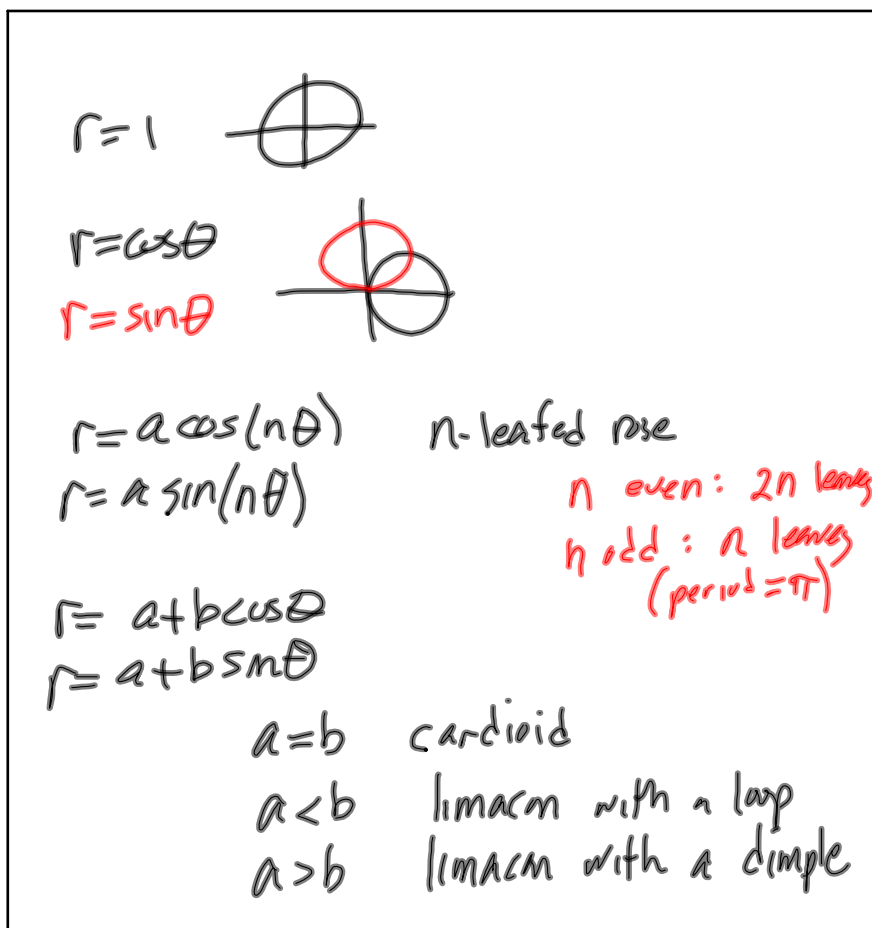 r=1
r=cosθ
r=sinθ
r=a cos(nθ) n-leafed rose
r=a sin(nθ)
n even: 2n leaves
n odd: n leaves
(period=π)
r= a+bcosθ
r= a+bsinθ
a=b cardioid
a<b limacon with a loop
a>b limacon with a dimple